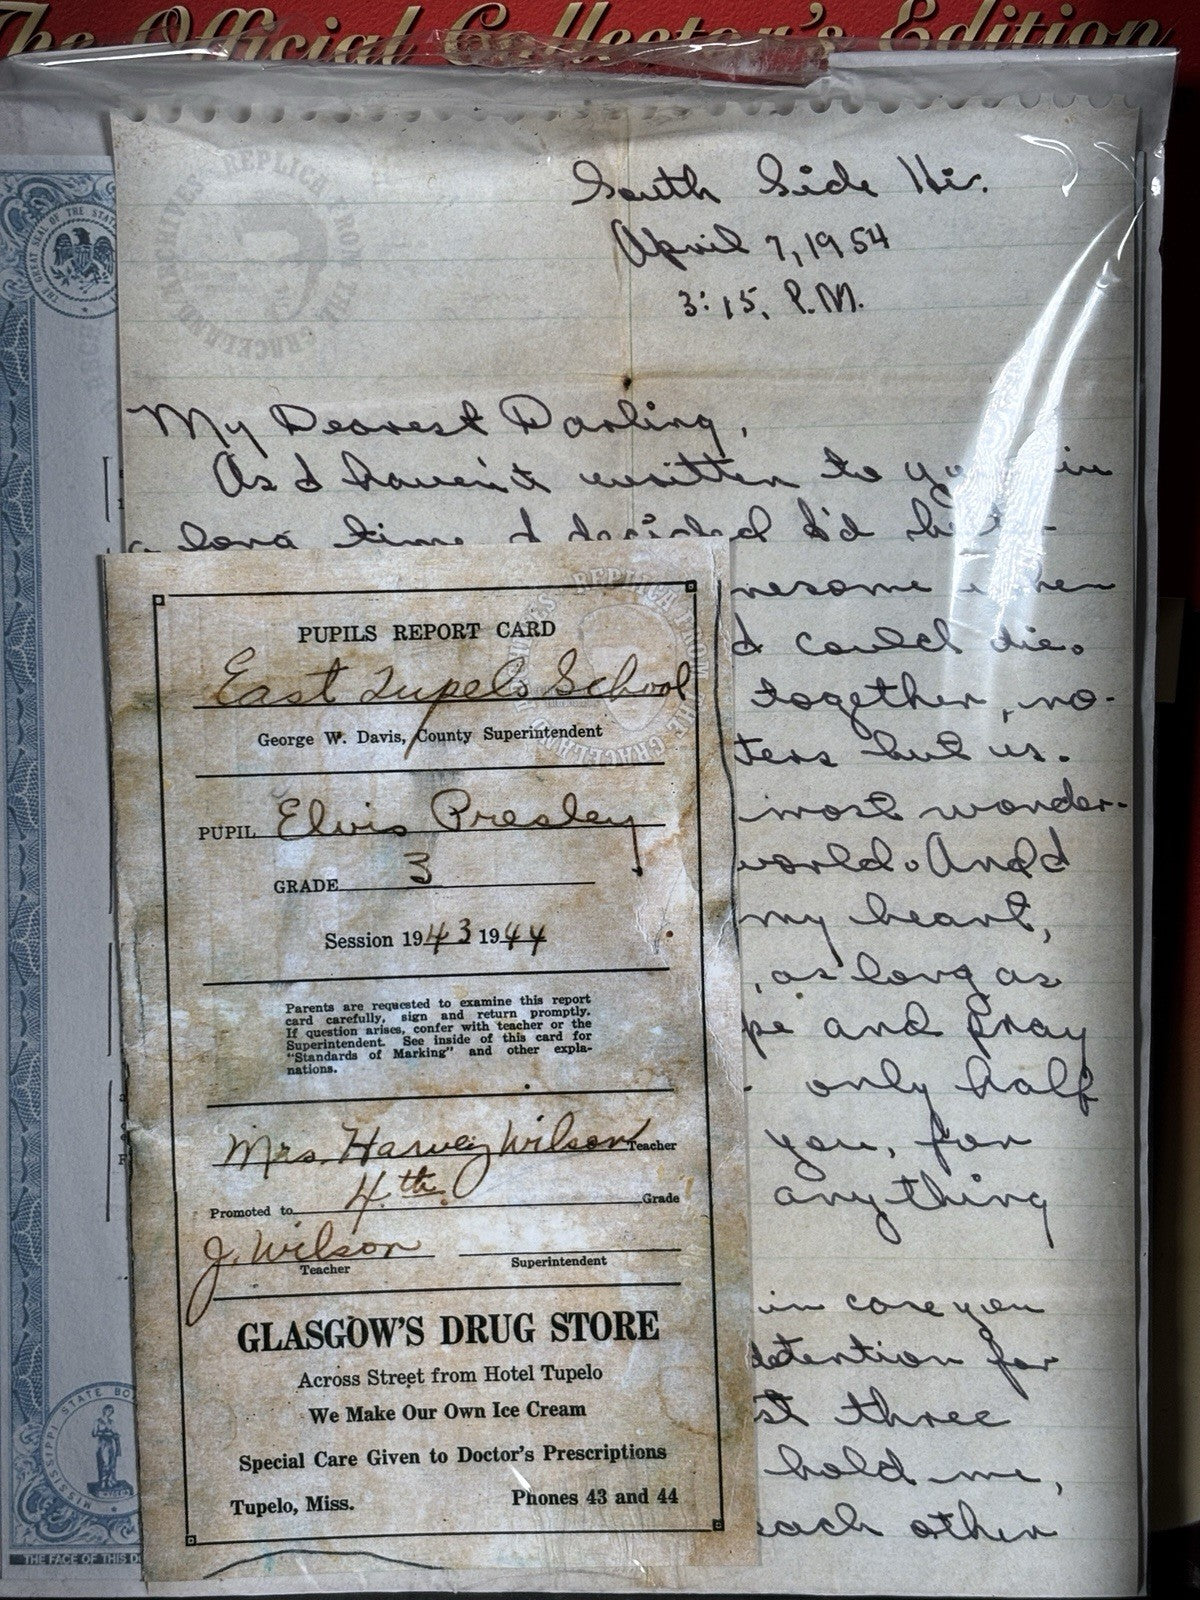 The Official Collector's Edition
REPLICA FROM THE GRACELAND ARCHIVES
THE GREAT SEAL OF THE STATE
South Side Hi.
April 7, 1954
3:15, P.M.
My Dearest Darling,
As I haven't written to you in
a long time I decided I'd
when
I could die.
together, no-
but us.
most wonder-
world. And I
my heart,
, as long as
and pray
only half
you, for
anything
in case you
detention for
three
hold me,
each other
REPLICA FROM THE GRACELAND ARCHIVES
PUPILS REPORT CARD
East Tupelo School
George W. Davis, County Superintendent
PUPIL Elvis Presley
GRADE 3
Session 1943 1944
Parents are requested to examine this report
card carefully, sign and return promptly.
If question arises, confer with teacher or the
Superintendent. See inside of this card for
"Standards of Marking" and other expla-
nations.
Mrs. Harvey Wilson Teacher
Promoted to 4th. Grade
J. Wilson
Teacher Superintendent
GLASGOW'S DRUG STORE
Across Street from Hotel Tupelo
We Make Our Own Ice Cream
Special Care Given to Doctor's Prescriptions
Tupelo, Miss. Phones 43 and 44
MISSISSIPPI STATE BO
THE FACE OF THIS D